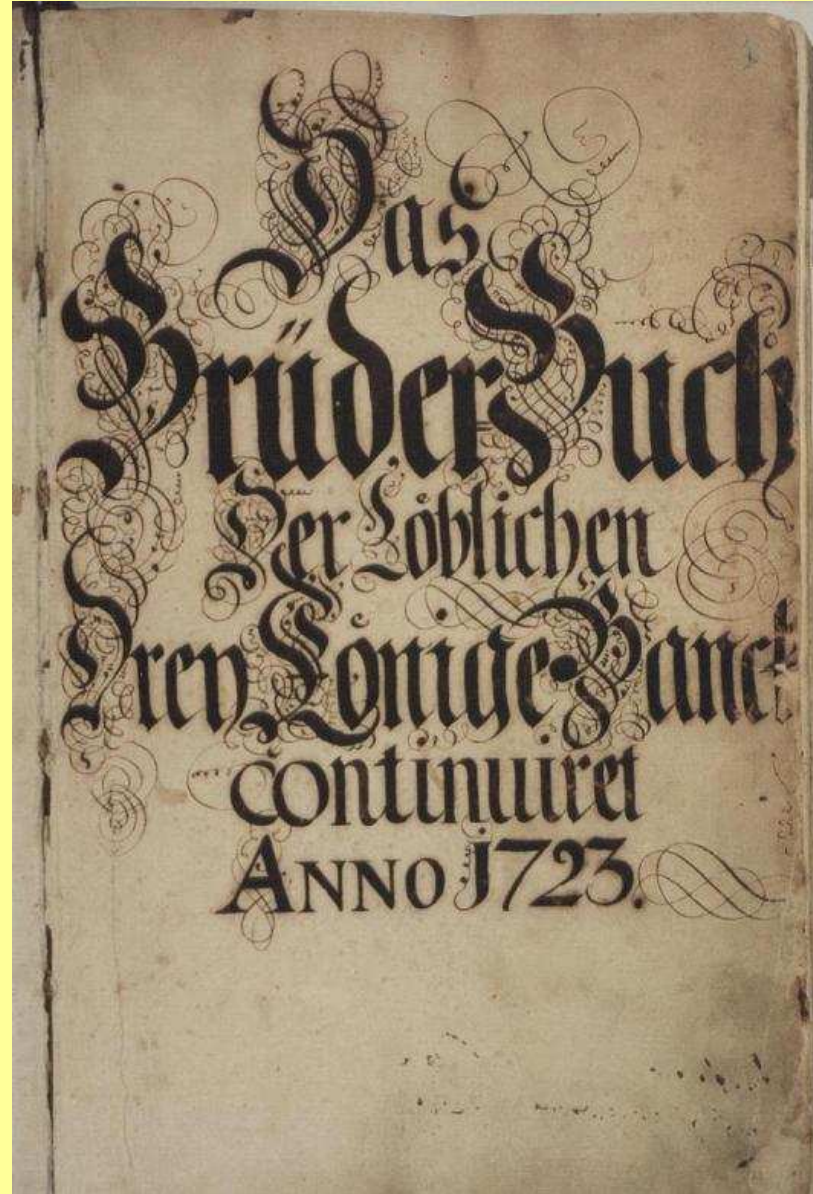 Das
Brüder Buch
Der Löblichen
Drey Könige-Banck
continuiret
ANNO 1723.